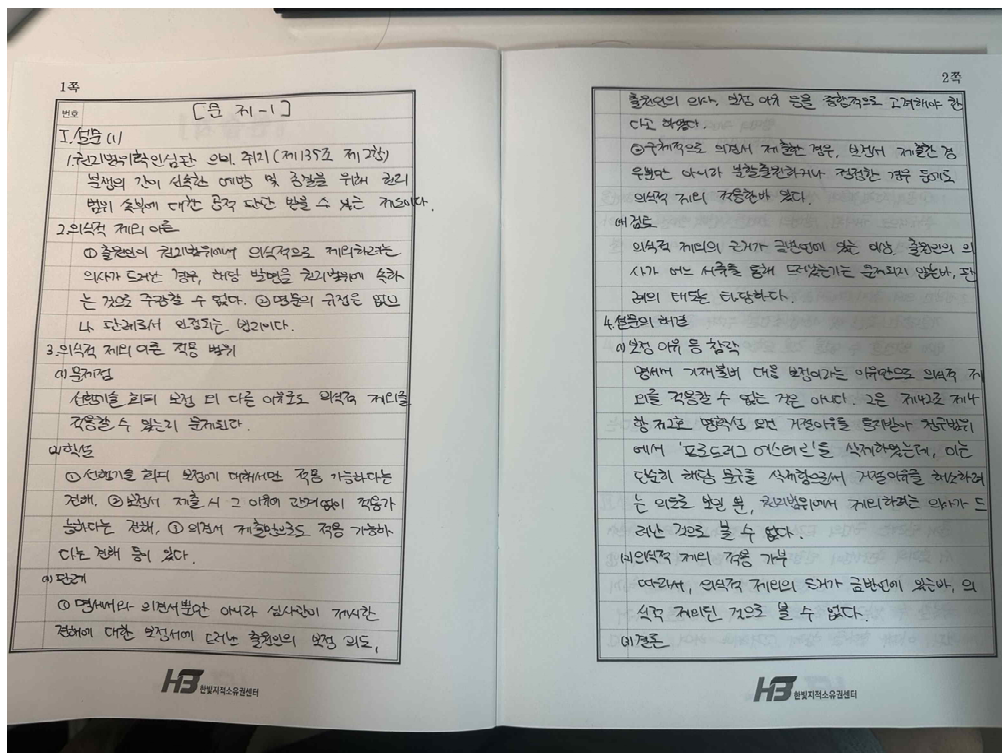 1쪽
번호
[문제-1]
I. 설문 (1)
1. 권리범위확인심판 의의, 취지 (제135조 제2항)
분쟁의 간이 신속한 예방 및 종결을 위해 권리
범위 속부에 대한 공적 판단 받을 수 있는 제도이다.
2. 의식적 제외 이론
① 출원인이 권리범위에서 의식적으로 제외하려는
의사가 드러난 경우, 해당 발명을 권리범위에 속하
는 것으로 주장할 수 없다. ② 명문의 규정은 없으
나 판례로서 인정되는 법리이다.
3. 의식적 제외 이론 적용 범위
(1) 문제점
선행기술 회피 보정 외 다른 이유로도 의식적 제외를
적용할 수 있는지 문제된다.
(2) 학설
① 선행기술 회피 보정에 대해서만 적용 가능하다는
견해, ② 보정서 제출 시 그 이유에 관계없이 적용가
능하다는 견해, ① 의견서 제출만으로도 적용 가능하
다는 견해 등이 있다.
(3) 판례
① 명세서와 의견서뿐만 아니라 심사관이 제시한
견해에 대한 보정서에 드러난 출원인의 보정 의도,
2쪽
출원인의 의사, 보정 이유 등을 종합적으로 고려해야 한
다고 하였다.
② 구체적으로 의견서 제출한 경우, 보정서 제출한 경
우뿐만 아니라 분할출원하거나 정정한 경우 등에도
의식적 제외 적용한바 있다.
(4) 검토
의식적 제외의 근거가 금반언에 있는 이상 출원인의 의
사가 어느 서류를 통해 드러났는가는 문제되지 않는바, 판
례의 태도는 타당하다.
4. 설문의 해결
(1) 보정 이유 등 참작
명세서 기재불비 대응 보정이라는 이유만으로 의식적 제
외를 적용할 수 없는 것은 아니다. 2은 제42조 제4
항 제2호 명확성 요건 거절이유를 통지받아 청구범위
에서 '프로드러그 에스테르'를 삭제하였는데, 이는
단순히 해당 문구를 삭제함으로써 거절이유를 해소하려
는 의도로 보일 뿐, 권리범위에서 제외하려는 의사가 드
러난 것으로 볼 수 없다.
(2) 의식적 제외 적용 가부
따라서, 의식적 제외의 근거가 금반언에 있는바, 의
식적 제외된 것으로 볼 수 없다.
(3) 결론
HB 한빛지적소유권센터
HB 한빛지적소유권센터